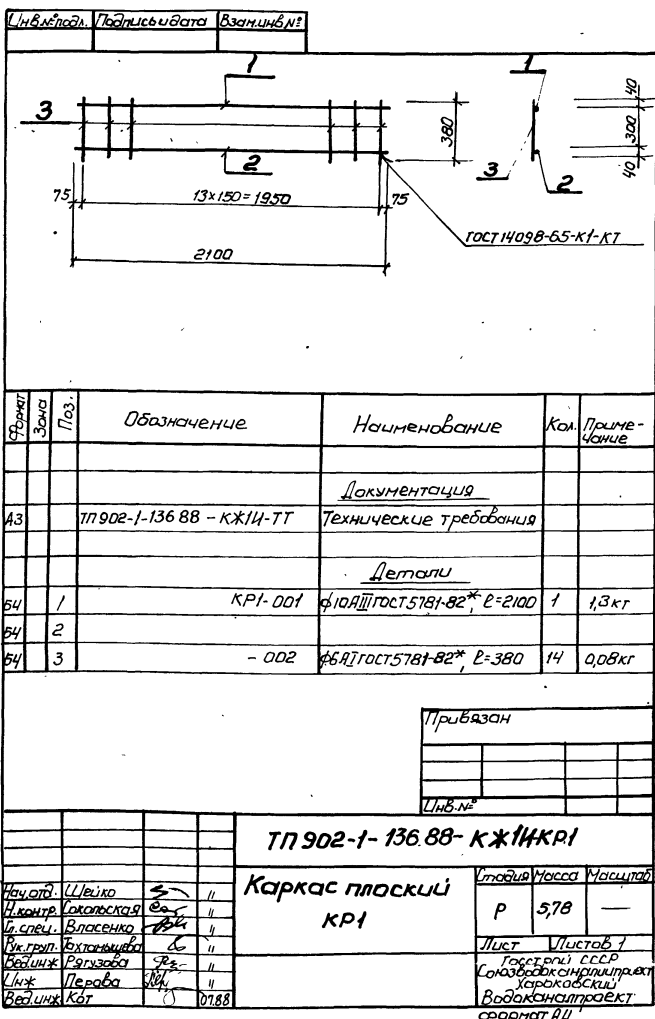 Инв.№ подл. Подпись и дата Взам.инв.№
1
1
3
380
40
300
40
2
3
2
75
13×150=1950
75
ГОСТ 14098-65-К1-КТ
2100
Формат Зона Поз. Обозначение Наименование Кол. Приме-
чание
Документация
А3 ТП 902-1-136.88 - КЖ1И-ТТ Технические требования
Детали
БЧ 1 КР1-001 ф10АIII ГОСТ 5781-82*, ℓ=2100 1 1,3кг
БЧ 2
БЧ 3 - 002 ф6АI ГОСТ 5781-82*, ℓ=380 14 0,08кг
Привязан
Инв.№
ТП 902-1-136.88-КЖ1И-КР1
Каркас плоский
КР1
Стадия Масса Масштаб
Р 5,78 —
Лист Листов 1
Госстрой СССР
Союзводоканалниипроект
Харьковский
Водоканалпроект
Нач.отд. Шейко "
Н.контр. Сокольская "
Гл.спец. Власенко "
Рук.груп. "
Вед.инж. Рягузова "
Инж Перова "
Вед.инж. Кот 07.88
формат А4